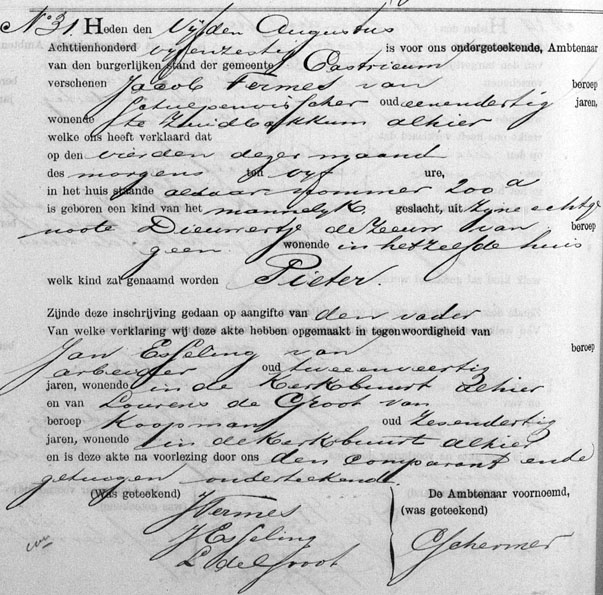 No 31. Heden den Vijfden Augustus
Achttienhonderd vijfenzestig is voor ons ondergeteekende, Ambtenaar
van den burgerlijken stand der gemeente Castricum
verschenen Jacob Vermes van beroep
Schulpenvisscher oud eenendertig jaren,
wonende te Zuidbakkum alhier
welke ons heeft verklaard dat
op den vierden dezer maand
des morgens ten vyf ure,
in het huis staande aldaar nommer 200 a
is geboren een kind van het mannelijk geslacht, uit zyne echtge
noote Dieuwertje de Zeeuw van beroep
geen. wonende in hetzelfde huis
welk kind zal genaamd worden Pieter.
Zijnde deze inschrijving gedaan op aangifte van den vader
Van welke verklaring wij deze akte hebben opgemaakt in tegenwoordigheid van
Jan Esseling van beroep
arbeider oud tweeenveertig
jaren, wonende in de Kerkbuurt alhier
en van Lourens de Groot van
beroep Koopman oud zesendertig
jaren, wonende in de Kerkbuurt alhier
en is deze akte na voorlezing door ons den comparant ende
getuigen onderteekend.
(Was geteekend) De Ambtenaar voornoemd,
(was geteekend)
J Vermes
J Esseling
L de Groot
C Schermer